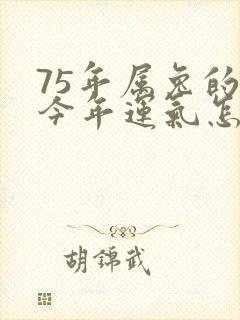 75年属兔的
今年运氣怎
胡锦武